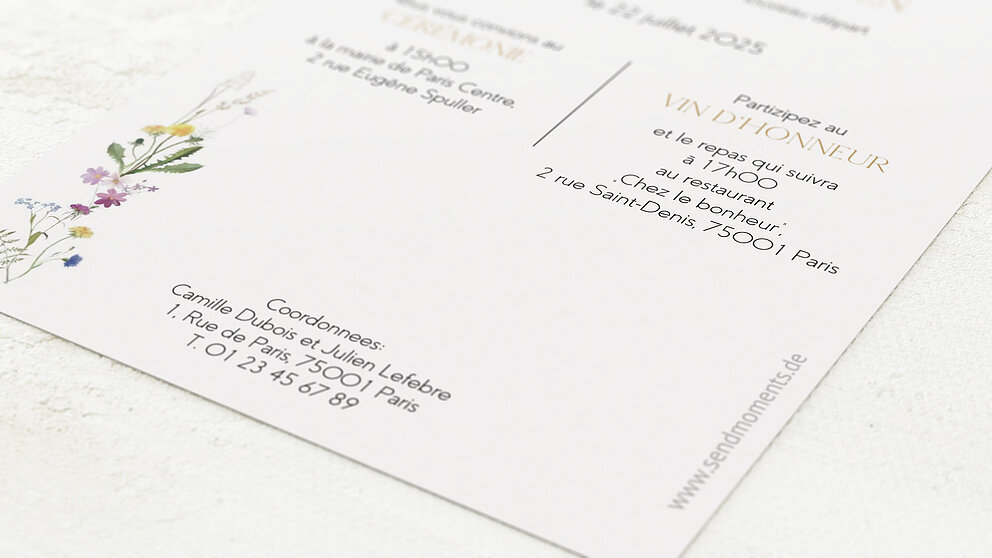 nouveau départ
le 22 juillet 2025
Nous vous convions au
CÉRÉMONIE
à 15h00
à la mairie de Paris Centre,
2 rue Eugène Spuller
Partizipez au
VIN D'HONNEUR
et le repas qui suivra
à 17h00
au restaurant
„Chez le bonheur“,
2 rue Saint-Denis, 75001 Paris
Coordonnees:
Camille Dubois et Julien Lefebre
1, Rue de Paris, 75001 Paris
T. 01 23 45 67 89
www.sendmoments.de